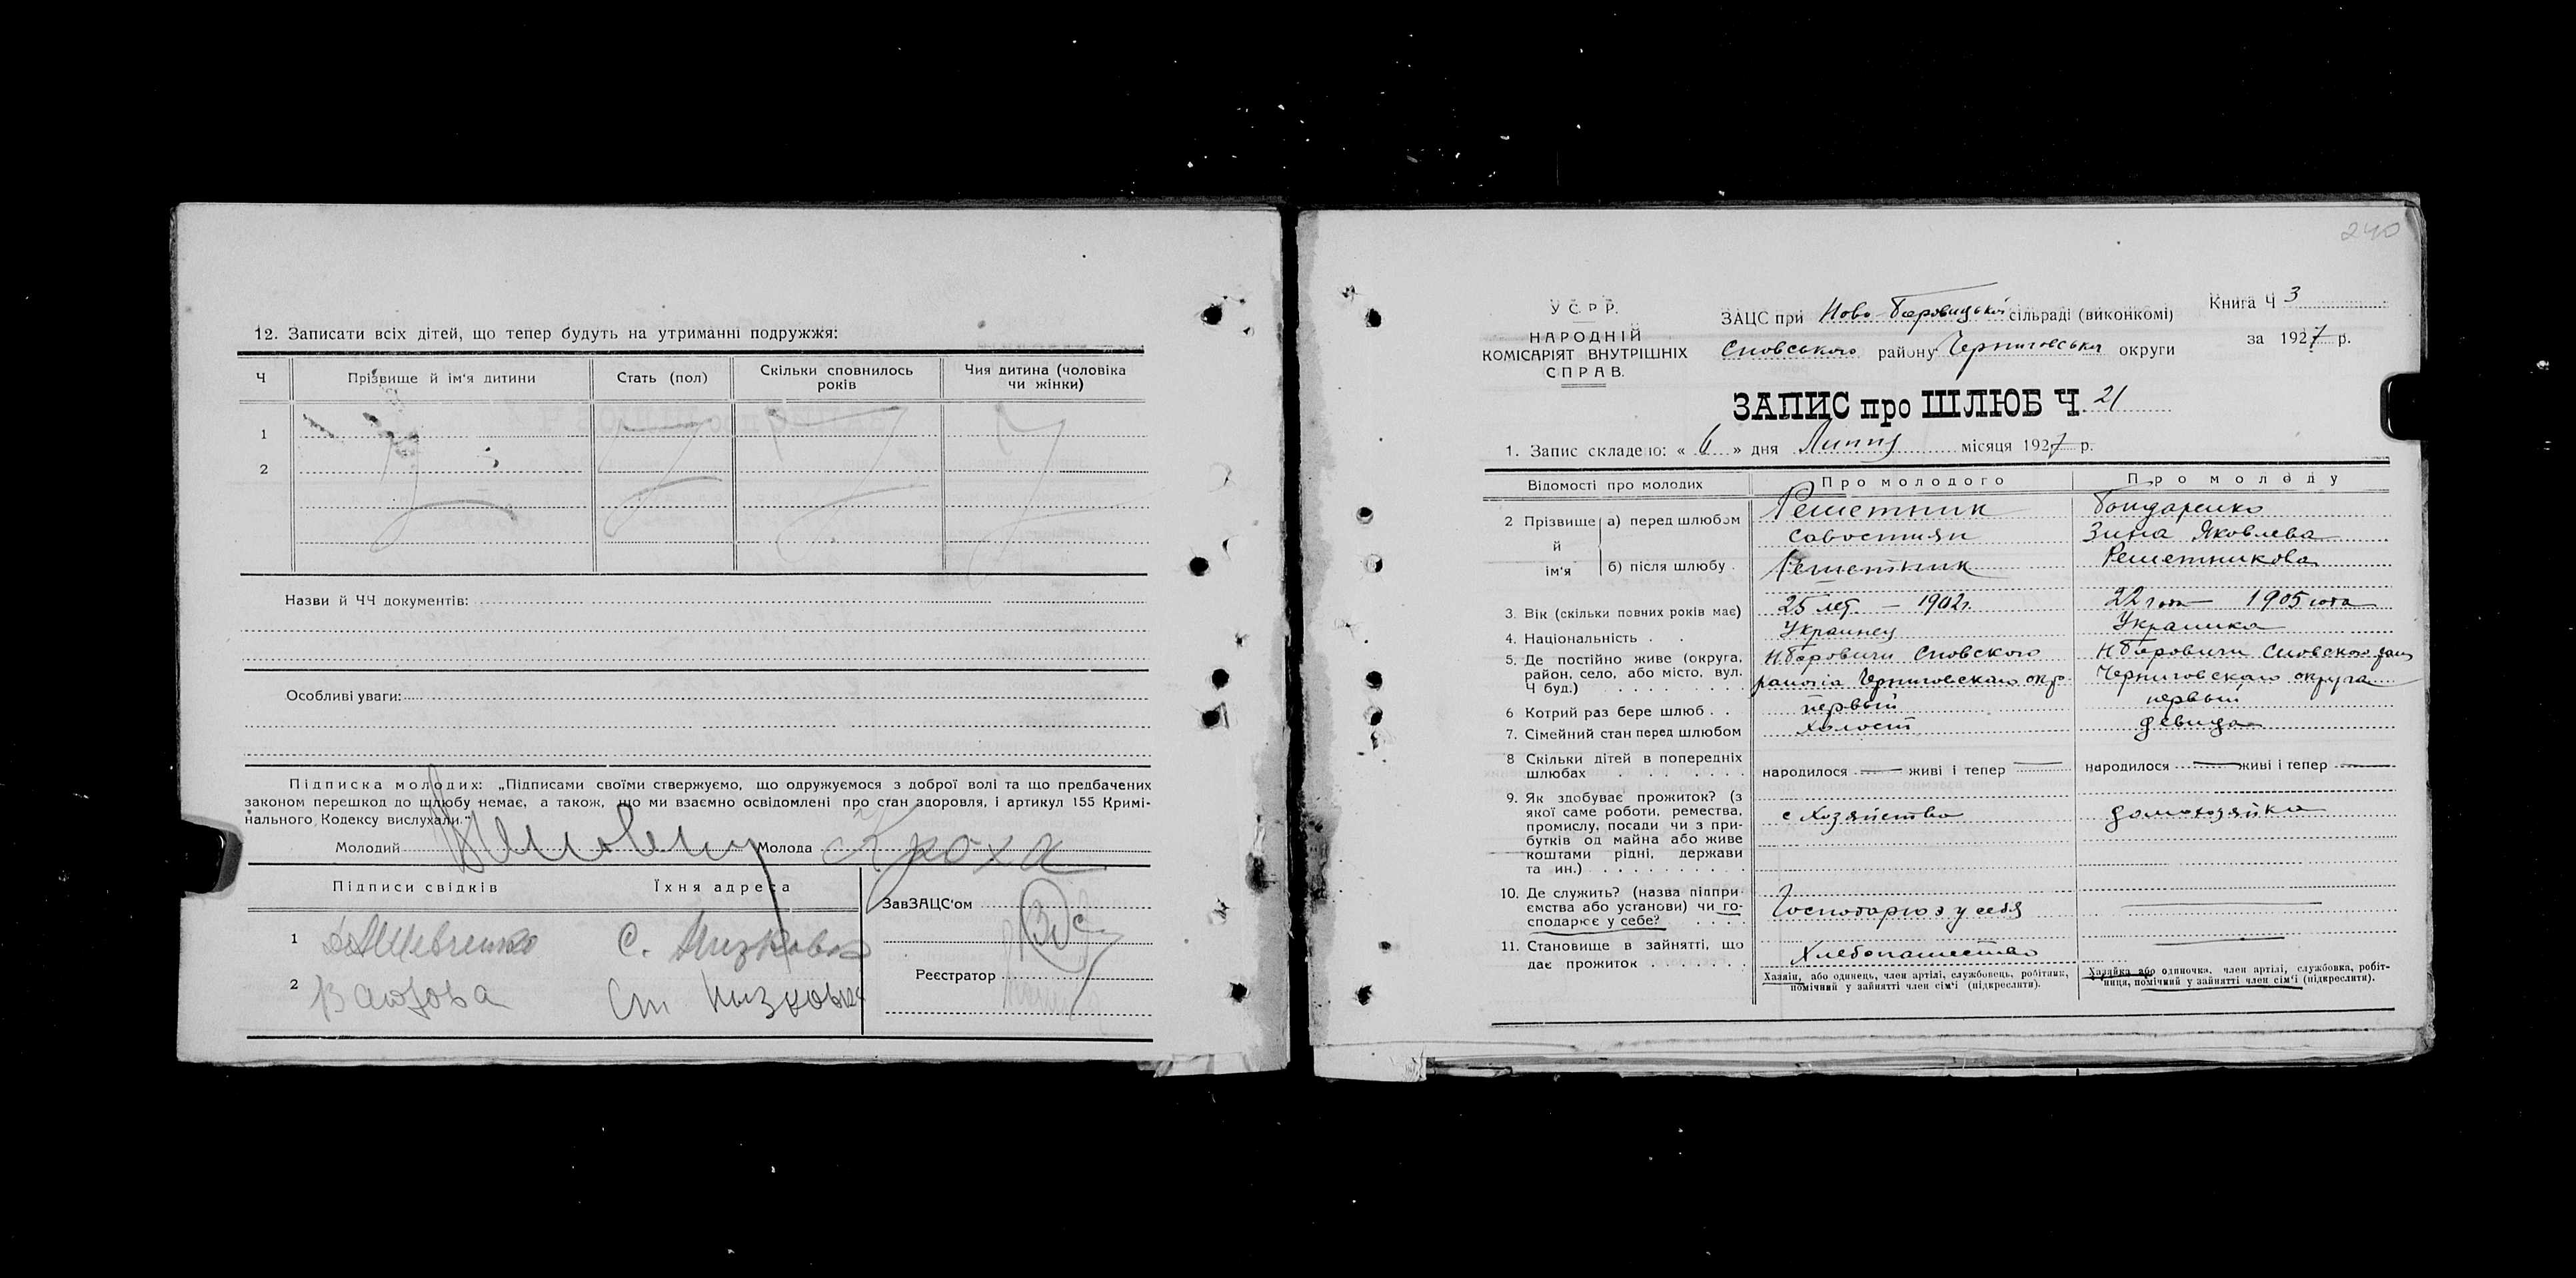 12. Записати всіх дітей, що тепер будуть на утриманні подружжя:
Ч
Прізвище й ім'я дитини
Стать (пол)
Скільки сповнилось
років
Чия дитина (чоловіка
чи жінки)
1
2
Назви й ЧЧ документів:
Особливі уваги:
Підписка молодих: „Підписами своїми стверджуємо, що одружуємося з доброї волі та що предбачених
законом перешкод до шлюбу немає, а також, що ми взаємно освідомлені про стан здоровля, і артикул 155 Кримі-
нального Кодексу вислухали."
Молодий
Молода Кроха
Підписи свідків
Їхня адреса
1 Шевченко С. Низковка
2 Ст Низковка
ЗавЗАЦС'ом
Реєстратор
240
У.С.Р.Р.
НАРОДНІЙ
КОМІСАРІЯТ ВНУТРІШНІХ
СПРАВ.
ЗАЦС при Ново-Боровицькій сільраді (виконкомі)
Сновського району Черниговськи округи
Книга Ч 3
за 1927 р.
ЗАПИС про ШЛЮБ Ч. 21
1. Запис складено: « 6 » дня Липня місяця 1927 р.
Відомості про молодих
Про молодого
Про молоду
2 Прізвище й ім'я
а) перед шлюбом
Решетник
Савостиян
Бондаренко
Зина Яковлева
б) після шлюбу
Решетник
Решетникова
3. Вік (скільки повних років має)
25 лет — 1902 г.
22 года — 1905 года
4. Національність
Украинец
Украинка
5. Де постійно живе (округа,
район, село, або місто, вул.
Ч буд.)
Н. Боровичи Сновского
района Черниговскаго окр.
Н Боровичи Сновского рай
Черниговскаго округа
6 Котрий раз бере шлюб
первый
первый
7. Сімейний стан перед шлюбом
холост
девица
8 Скільки дітей в попередніх
шлюбах
народилося — живі і тепер —
народилося — живі і тепер —
9. Як здобуває прожиток? (з
якої саме роботи, ремества,
промислу, посади чи з при-
бутків од майна або живе
коштами рідні, держави
та ин.)
с хозяйства
домохозяйка
10. Де служить? (назва підпри-
ємства або установи) чи го-
сподарює у себе?
у себя
11. Становище в зайнятті, що
дає прожиток
Хлебопашество
Хазяїн, або одинець, член артілі, службовець, робітник,
помічний у зайнятті член сім'ї (підкреслити).
Хазяйка або одиночка, член артілі, службовка, робіт-
ниця, помічний у зайнятті член сім'ї (підкреслити).